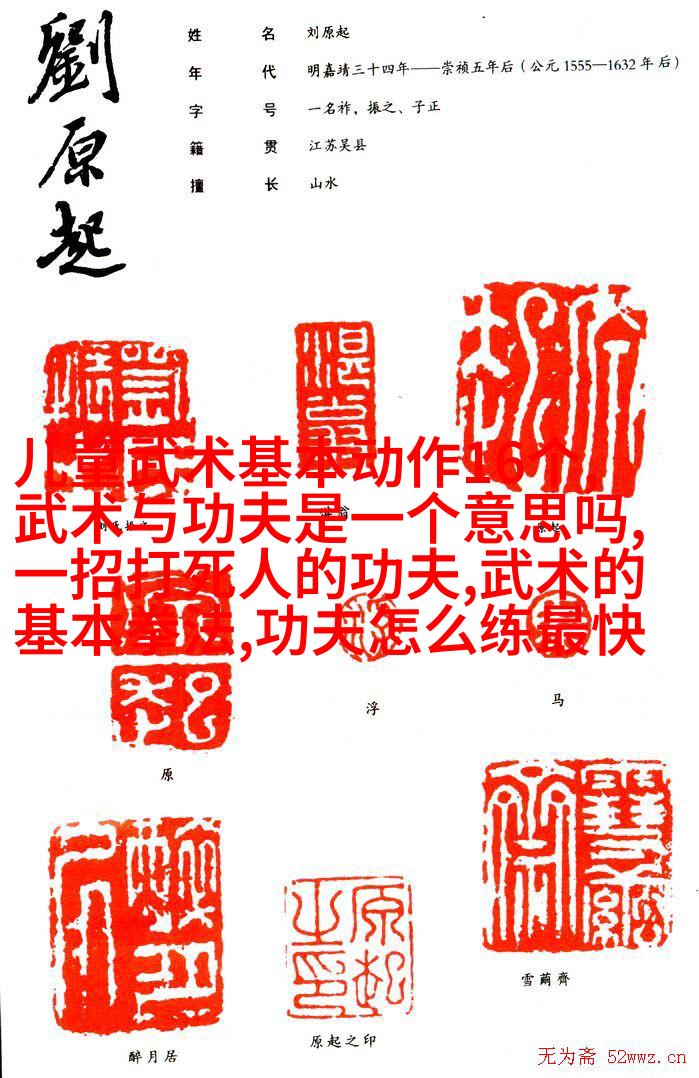 劉原起
姓名 刘原起
年代 明嘉靖三十四年——崇祯五年后（公元1555—1632年后）
字号 一名祚，振之、子正
籍贯 江苏吴县
擅长 山水
儿童武术基本动作16个,
武术与功夫是一个意思吗,
一招打死人的功夫,武术的
基本拳法,功夫怎么练最快
原起
浮
马
原
雪蔄齊
醉月居
原起之印
原起之印
无为斋 52wwz.cn